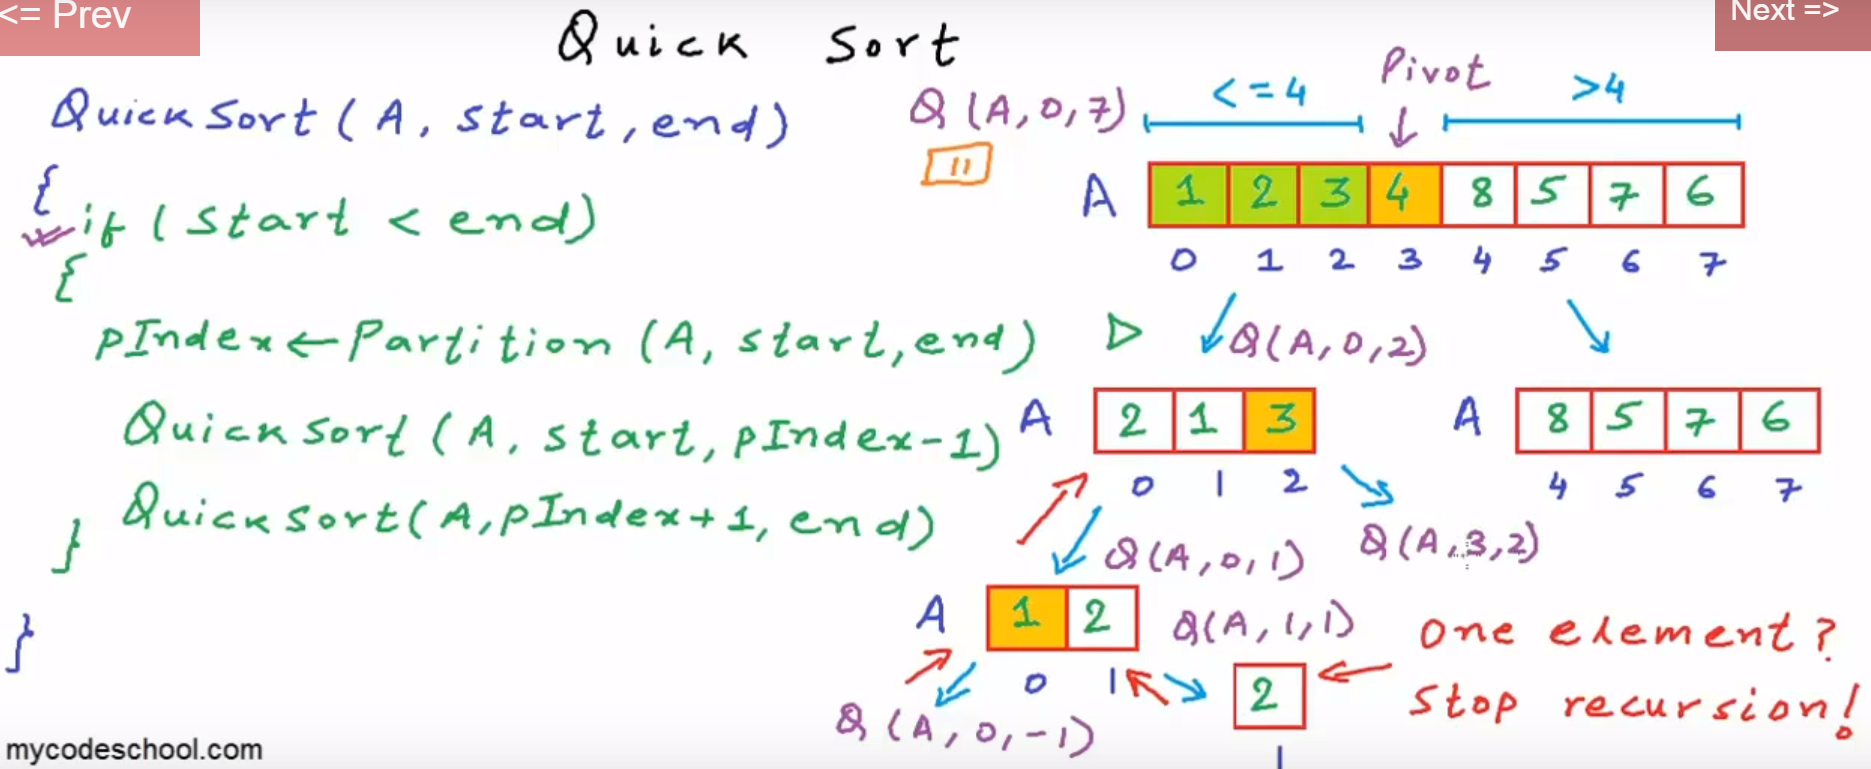 <= Prev
Next =>
Quick Sort
QuickSort(A, start, end)
{
if (start < end)
{
pIndex←Partition (A, start, end)
QuickSort(A, start, pIndex-1)
QuickSort(A, pIndex+1, end)
}
}
Q(A,0,7)
<=4
Pivot
>4
A 1 2 3 4 8 5 7 6
0 1 2 3 4 5 6 7
Q(A,0,2)
A 2 1 3
0 1 2
A 8 5 7 6
4 5 6 7
Q(A,0,1)
Q(A,3,2)
A 1 2
0 1
Q(A,1,1)
2
1
One element?
Stop recursion!
Q(A,0,-1)
mycodeschool.com